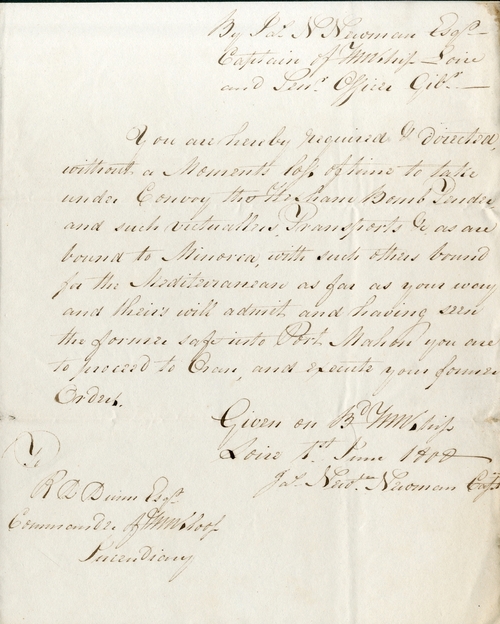 By Jas. N Newman Esqr.
Captain of HM Ship Loire
and Senr. Officer Gibr.
You are hereby required & directed,
without a Moments loss of time to take
under Convoy the Bomb Tender
and such victuallers, Transports &c as are
bound to Minorca, with such others bound
for the Mediterranean as far as your way
and theirs will admit and having seen
the former safe into Port Mahon you are
to proceed to Oran, and execute your former
Orders.
Given on Bd. HM Ship
Loire 1st June
Jas. Newn. Newman Capt
To
R D Dunn Esqr
Commander of HM Sloop
Incendiary